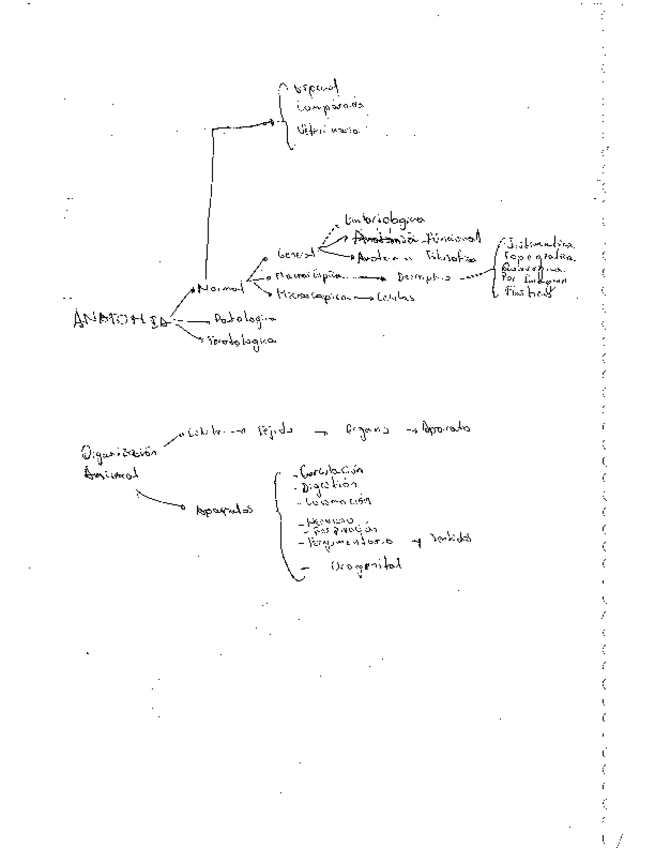 Especial
Comparada
Veterinaria
Embriologica
General
Anatomia Funcional
Anatomia Filosofica
Sistematica
Topografica
Normal
Macroscópica
Descriptiva
Por Imagenes
Microscopica
Celulas
ANATOMIA
Patologica
Teratologica
Celula Tejido Organo Aparato
Organización
Animal
Aparatos
- Circulación
- Digestión
- Locomoción
- Nervioso
- Respiración
- Tegumentario Sentidos
- Urogenital